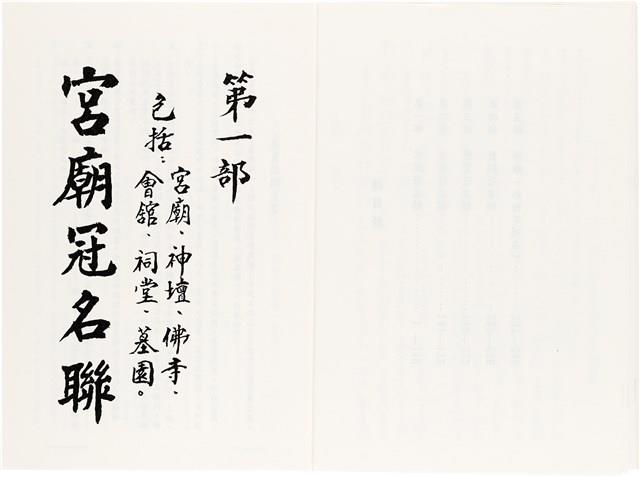 第一部
包括：宮廟、神壇、佛寺、
會舘、祠堂、墓園。
宮廟冠名聯